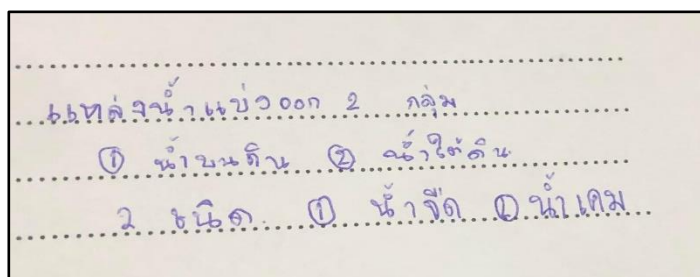 แหล่งน้ำแบ่งออก 2 กลุ่ม
① น้ำบนดิน ② น้ำใต้ดิน
2 ชนิด ① น้ำจืด ② น้ำเคม